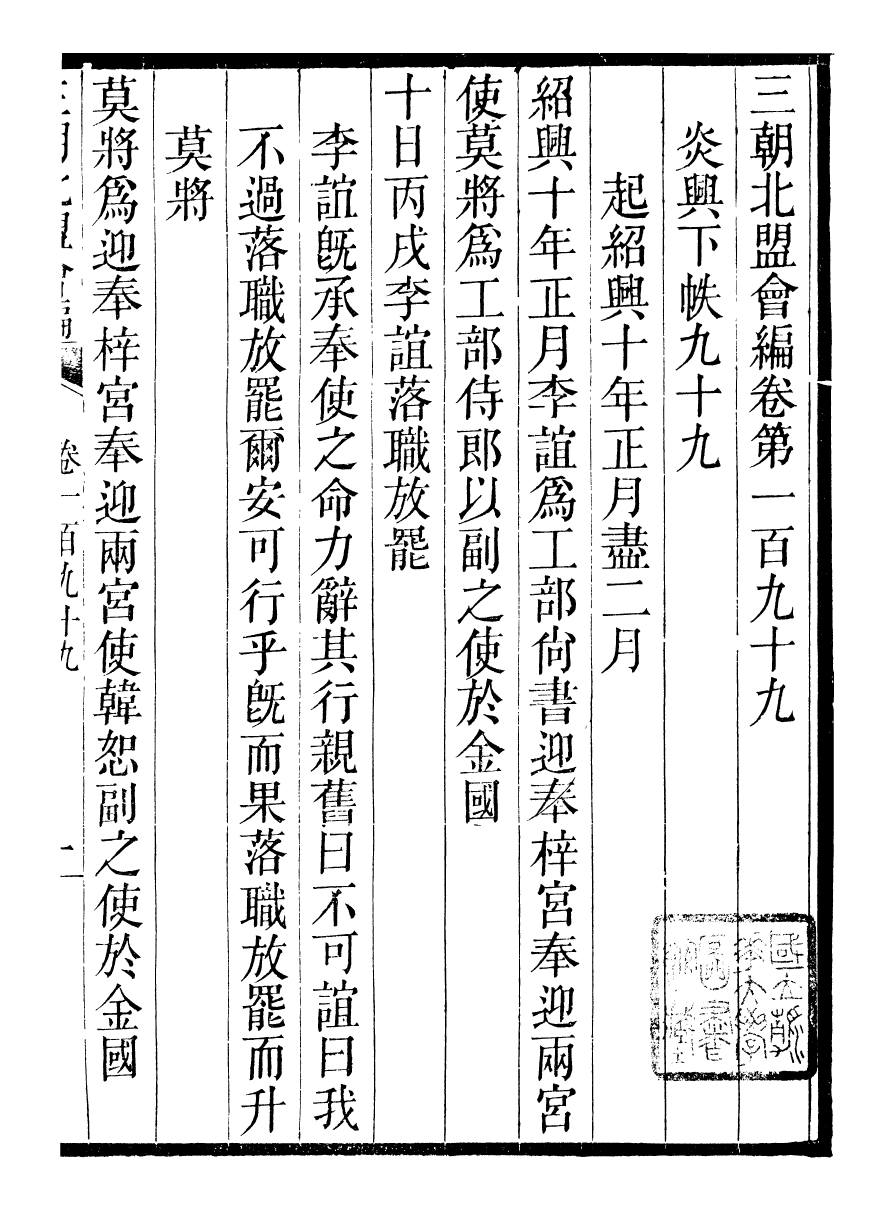 三朝北盟會編卷第一百九十九
炎興下帙九十九
起紹興十年正月盡二月
紹興十年正月李誼爲工部尙書迎奉梓宮奉迎兩宮
使莫將爲工部侍郎以副之使於金國
十日丙戌李誼落職放罷
李誼旣承奉使之命力辭其行親舊曰不可誼曰我
不過落職放罷爾安可行乎旣而果落職放罷而升
莫將
莫將爲迎奉梓宮奉迎兩宮使韓恕副之使於金國
三朝北盟會編 卷一百九十九 一